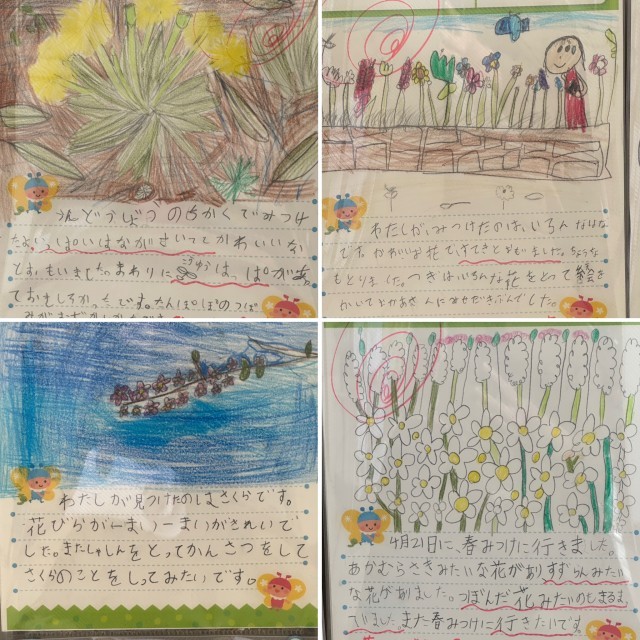 うんどうじょうのちかくでみつけ
たよ。いっぱいはながさいててかわいいな
とおもいました。まわりに
は、はっぱがあっ
ておもしろかったです。たんぽぽのつぼ
わたしが、みつけたのは、いろんなはな
です。かわいい花で、すてきとおもいました。
もとりました。つぎはいろんな花をとって絵を
かいてよかあさんにみせたきぶんでした。
わたしが見つけたのはさくらです。
花びらが一まい一まいがきれいで
した。またしゃしんをとってかんさつをして
さくらのことをしってみたいです。
4月21日に、春みつけに行きました。
あかむらさきみたいな花がありすずらんみたい
な花がありました。つぼんだ花みたいのしきるま
ていました。また春みつけに行きたいです